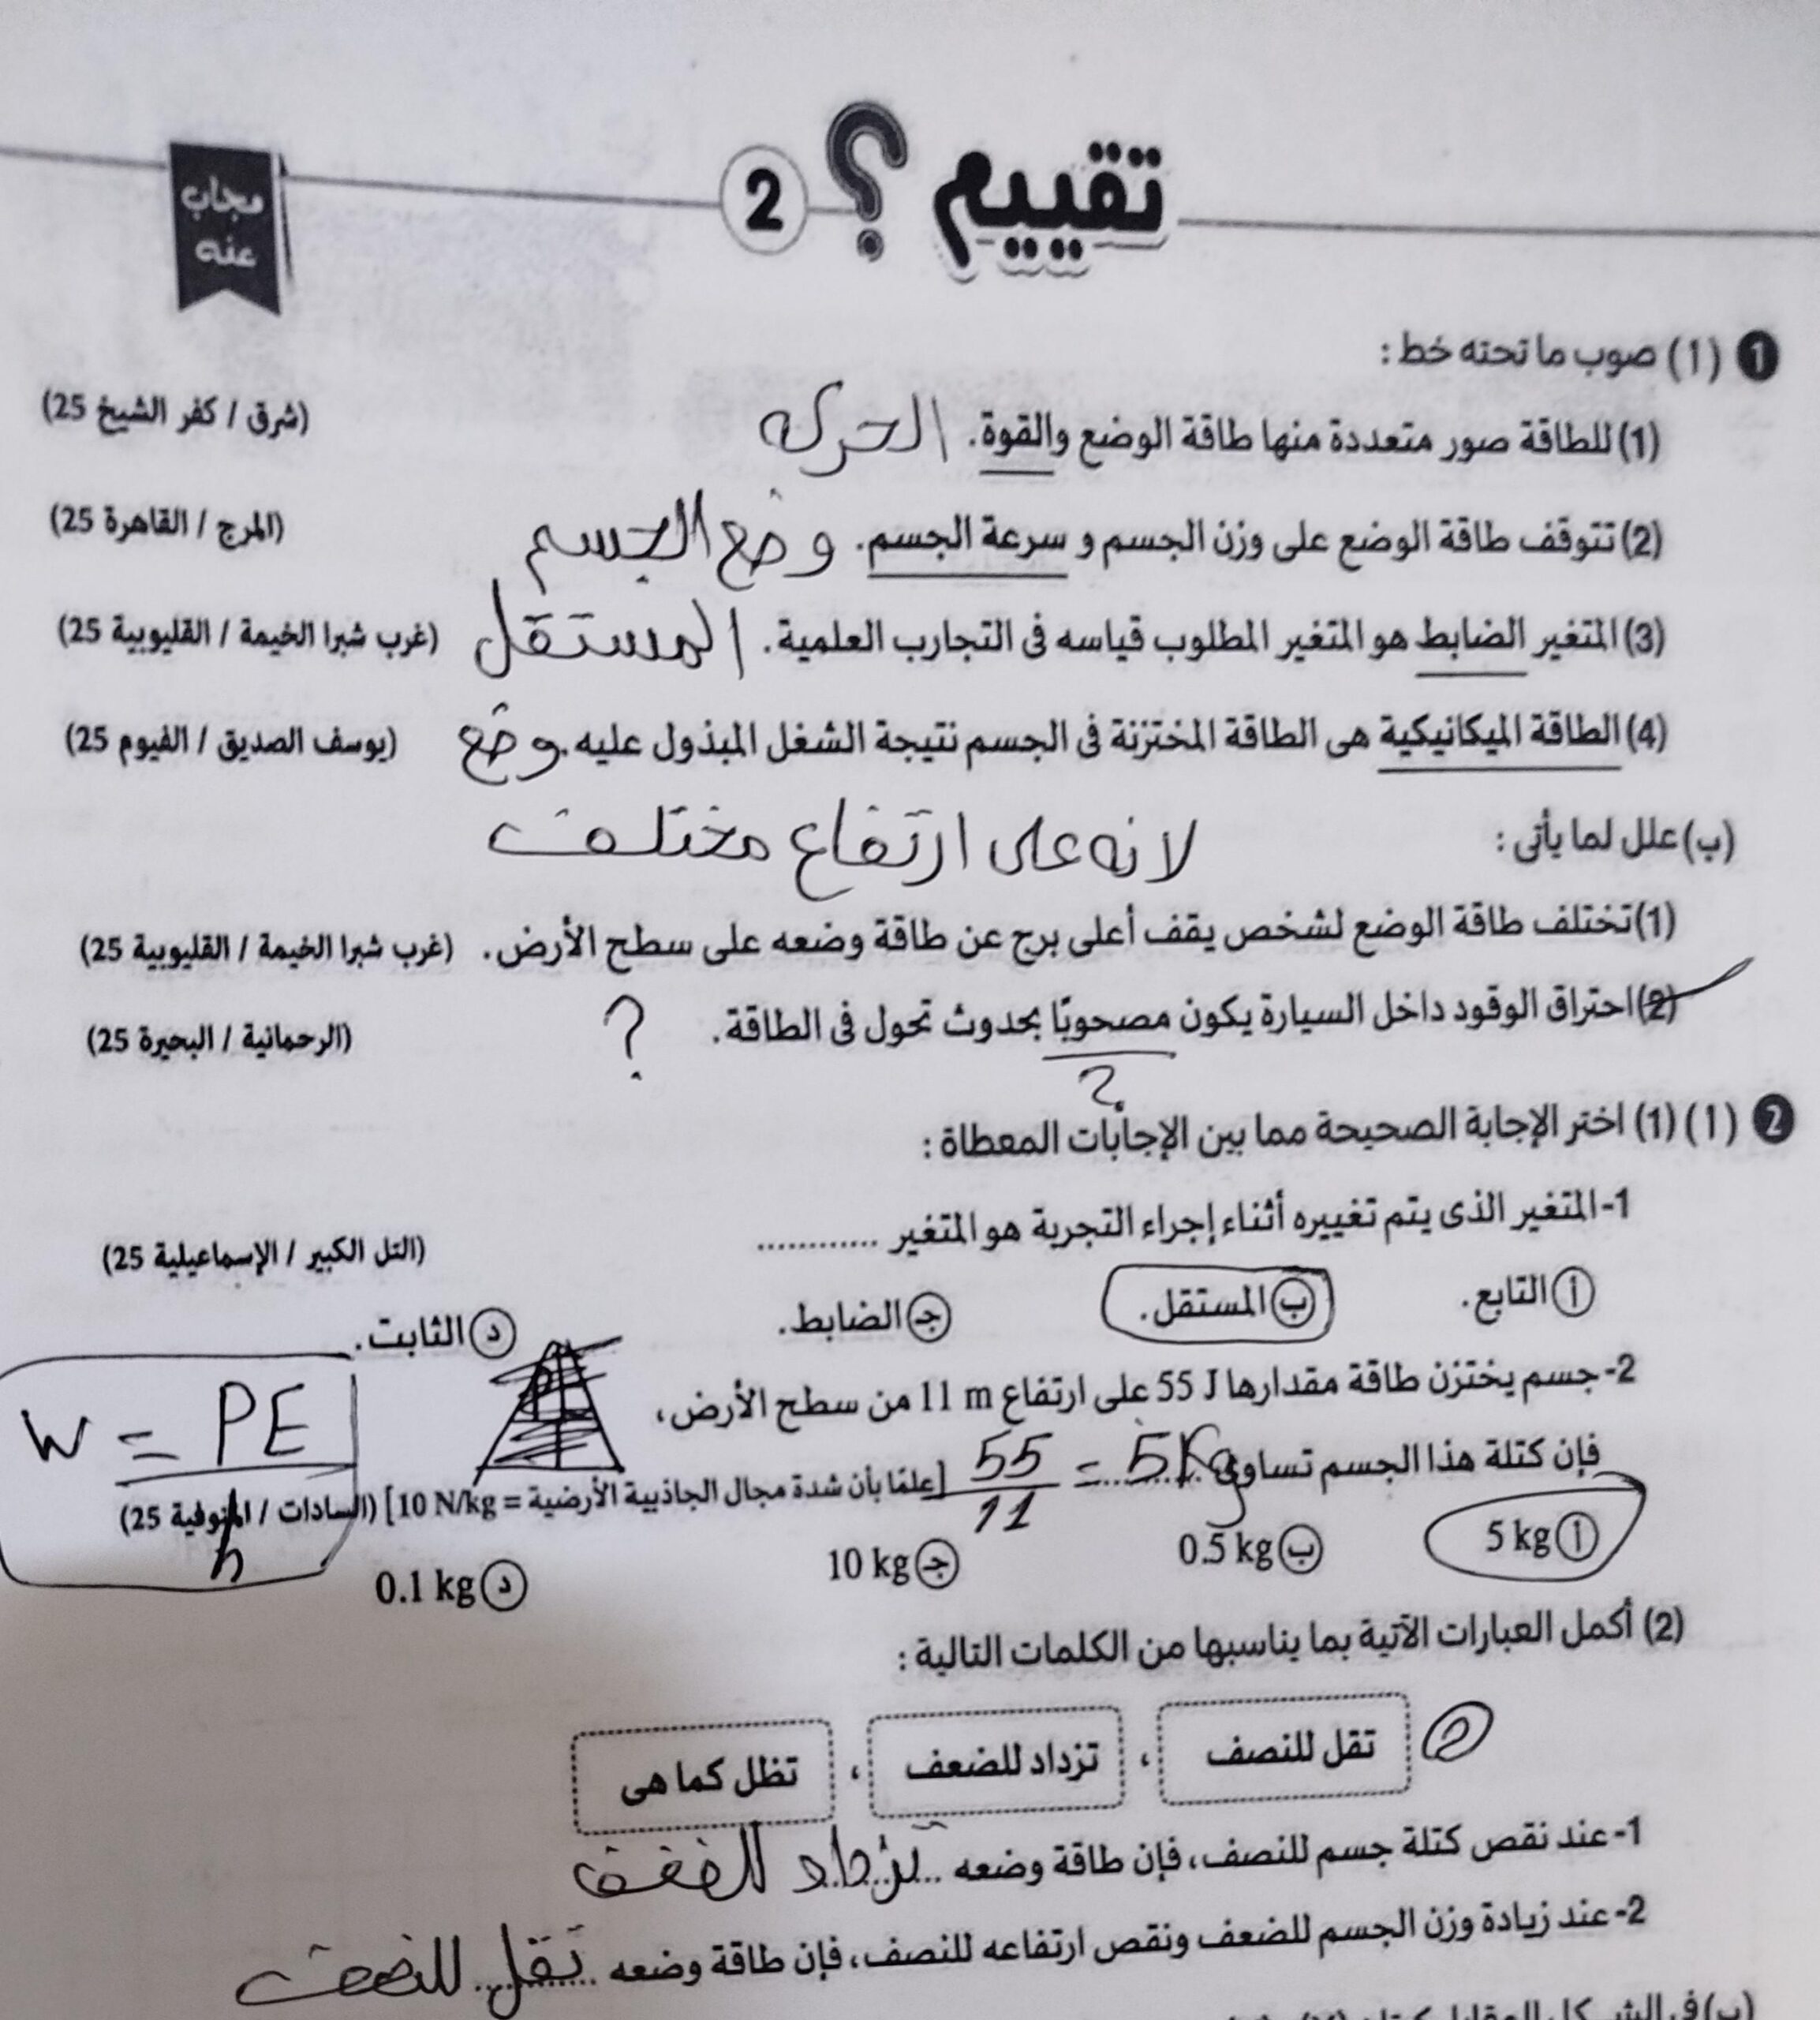 تقييم ؟ 2
مجاب
عنه
1 (أ) صوب ما تحته خط :
(1) للطاقة صور متعددة منها طاقة الوضع والقوة. الحركه (شرق / كفر الشيخ 25)
(2) تتوقف طاقة الوضع على وزن الجسم و سرعة الجسم. وضع الجسم (المرج / القاهرة 25)
(3) المتغير الضابط هو المتغير المطلوب قياسه فى التجارب العلمية. المستقل (غرب شبرا الخيمة / القليوبية 25)
(4) الطاقة الميكانيكية هى الطاقة المختزنة فى الجسم نتيجة الشغل المبذول عليه. وضع (يوسف الصديق / الفيوم 25)
(ب) علل لما يأتى : لانه على ارتفاع مختلف
(1) تختلف طاقة الوضع لشخص يقف أعلى برج عن طاقة وضعه على سطح الأرض. (غرب شبرا الخيمة / القليوبية 25)
(2) احتراق الوقود داخل السيارة يكون مصحوبًا بحدوث تحول فى الطاقة. ? (الرحمانية / البحيرة 25)
?
2 (أ) (1) اختر الإجابة الصحيحة مما بين الإجابات المعطاة :
1- المتغير الذى يتم تغييره أثناء إجراء التجربة هو المتغير ............ (التل الكبير / الإسماعيلية 25)
أ التابع. ب المستقل. ج الضابط. د الثابت.
2- جسم يختزن طاقة مقدارها 55 J على ارتفاع 11 m من سطح الأرض،
فإن كتلة هذا الجسم تساوى ............ [علمًا بأن شدة مجال الجاذبية الأرضية = 10 N/kg] (السادات / المنوفية 25)
55 = 5Kg
11
W = PE
h
أ 5 kg ب 0.5 kg ج 10 kg د 0.1 kg
(2) أكمل العبارات الآتية بما يناسبها من الكلمات التالية :
تقل للنصف ، تزداد للضعف ، تظل كما هى
1- عند نقص كتلة جسم للنصف، فإن طاقة وضعه تزداد
2- عند زيادة وزن الجسم للضعف ونقص ارتفاعه للنصف، فإن طاقة وضعه تقل